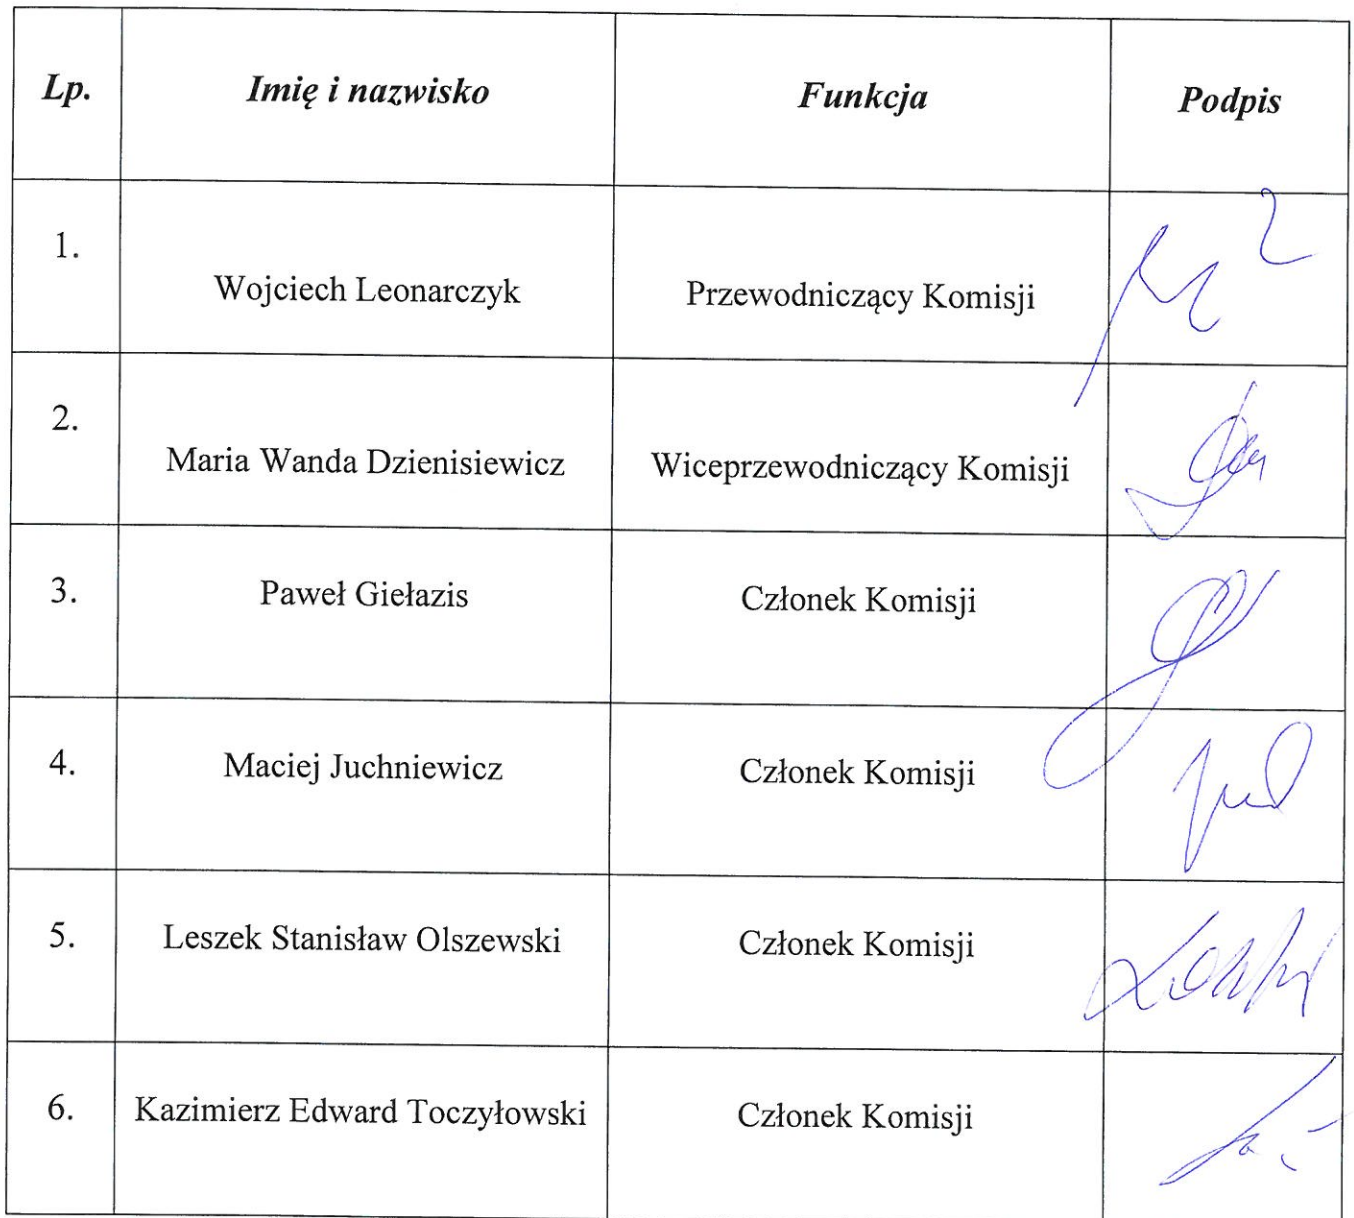 Lp. Imię i nazwisko Funkcja Podpis
1. Wojciech Leonarczyk Przewodniczący Komisji
2. Maria Wanda Dzienisiewicz Wiceprzewodniczący Komisji
3. Paweł Giełazis Członek Komisji
4. Maciej Juchniewicz Członek Komisji
5. Leszek Stanisław Olszewski Członek Komisji
6. Kazimierz Edward Toczyłowski Członek Komisji